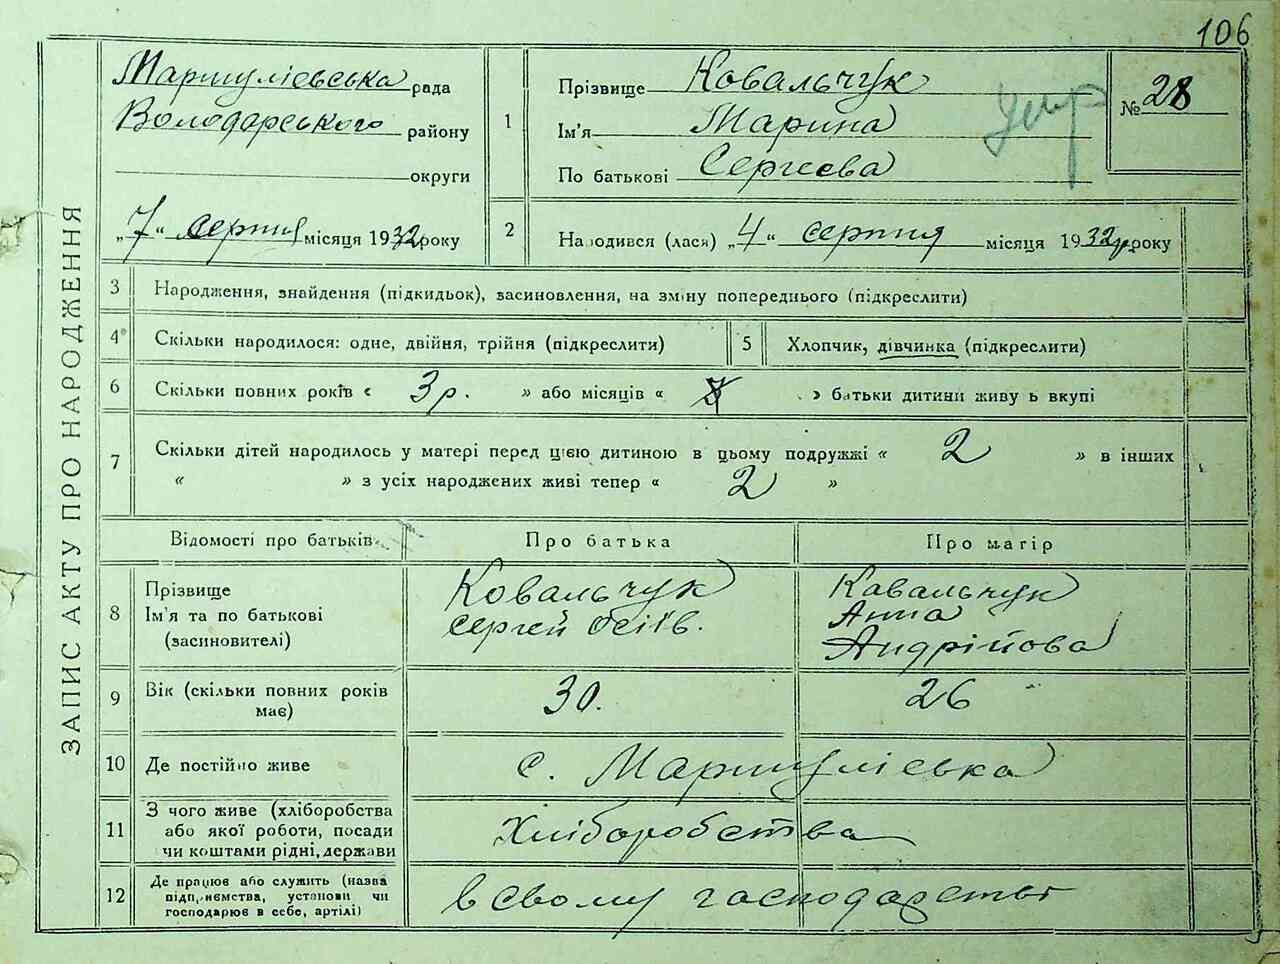 106
ЗАПИС АКТУ ПРО НАРОДЖЕННЯ
Мармуліевська рада
Володарського району
округи
„7“ серпня місяця 1932 року
1
Прізвище Ковальчук
Ім'я Марина
По батькові Сергєева
умр
№ 28
2
Народився (лася) „4“ серпня місяця 1932р року
3 Народження, знайдення (підкидьок), засиновлення, на зміну попереднього (підкреслити)
4 Скільки народилося: одне, двійня, трійня (підкреслити)
5 Хлопчик, дівчинка (підкреслити)
6 Скільки повних років « 3 р. » або місяців « » батьки дитини живу ь вкупі
7 Скільки дітей народилось у матері перед цією дитиною в цьому подружжі « 2 » в інших
« » з усіх народжених живі тепер « 2 »
Відомості про батьків Про батька Про матір
8 Прізвище
Ім'я та по батькові
(засиновителі)
Ковальчук
Сергей
Кавальчук
Анна
Андрійова
9 Вік (скільки повних років
має)
30. 26
10 Де постійно живе с. Мармуліевка
11 З чого живе (хліборобства
або якої роботи, посади
чи коштами рідні, держави
Хліборобства
12 Де працює або служить (назва
підприємства, установи чи
господарює в себе, артілі)
в свому господарстві